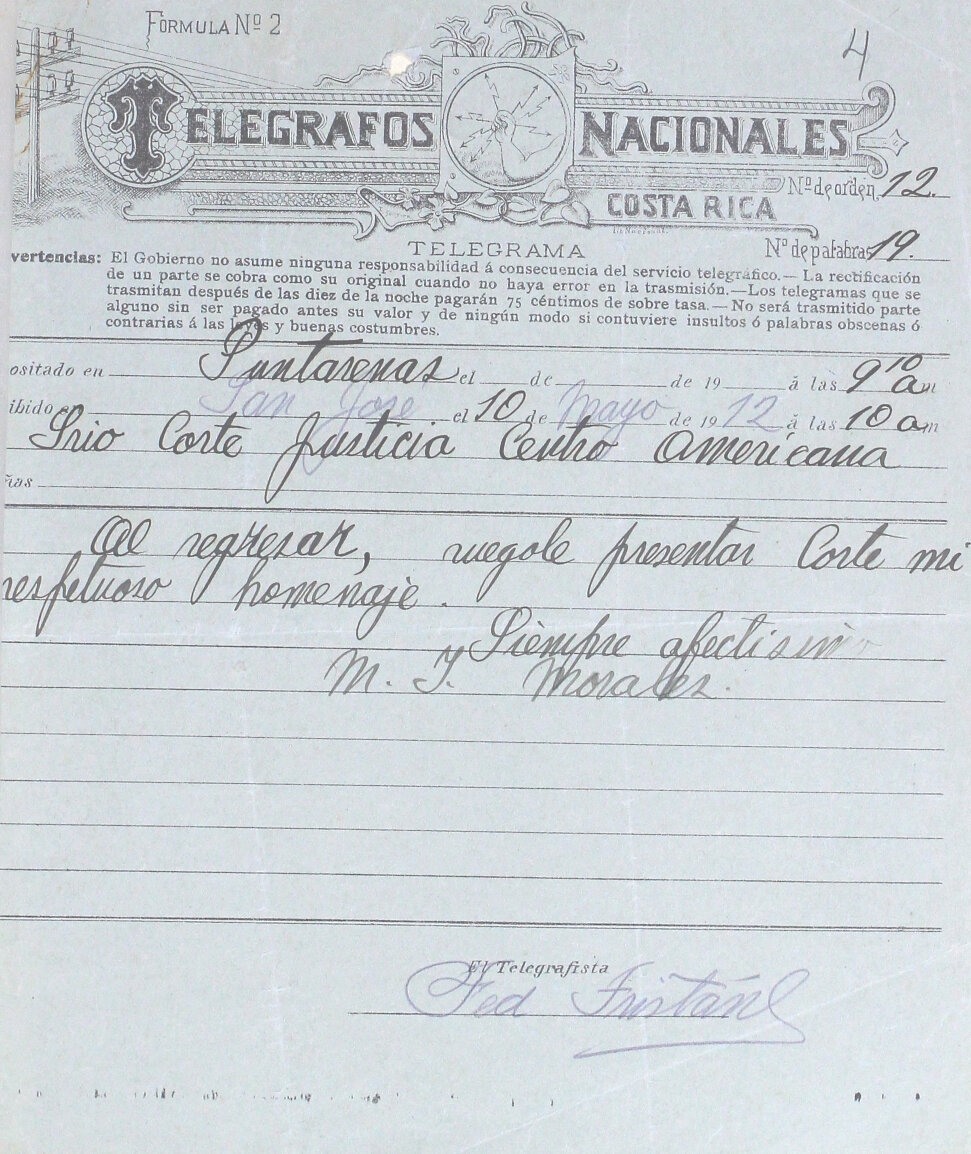 FÓRMULA Nº 2
4
TELEGRAFOS NACIONALES
COSTA RICA
Nº de orden 12.
TELEGRAMA
Nº de palabras 19.
vertencias: El Gobierno no asume ninguna responsabilidad á consecuencia del servicio telegráfico.— La rectificación
de un parte se cobra como su original cuando no haya error en la trasmisión.—Los telegramas que se
trasmitan después de las diez de la noche pagarán 75 céntimos de sobre tasa.— No será trasmitido parte
alguno sin ser pagado antes su valor y de ningún modo si contuviere insultos ó palabras obscenas ó
contrarias á las leyes y buenas costumbres.
ositado en Puntarenas el de de 19 á las 9 10 am
ibido en San José el 10 de Mayo de 1912 á las 10 am
Srio Corte Justicia Centro Americana
ñas
Al regresar, ruegole presentar Corte mi
respetuoso homenaje.
Siempre afectisimo
M. J. Morales.
El Telegrafista
Fed Tristán